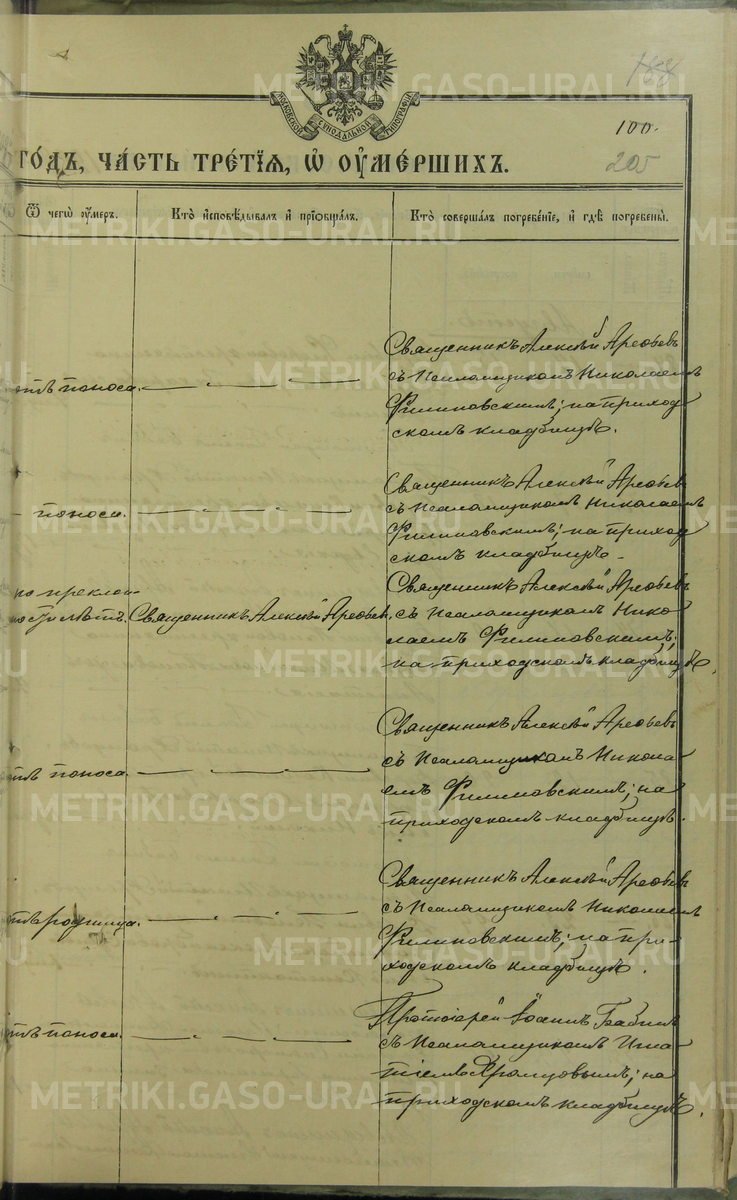 188
МОСКОВСКОЙ СѴНОДАЛЬНОЙ ТИПОГРАФІИ
100.
205
ГО́ДЪ, ЧА́СТЬ ТРЕ́ТІѦ, Ѡ ОУМЕ́РШИХЪ.
Ѿ чегѡ̀ оу́меръ.
Кто̀ и҆сповѣ́дывалъ и҆ прїѡбща́лъ.
Кто̀ соверша́лъ погребе́нїе, и҆ гдѣ̀ погребены̀.
Священникъ Алексѣй Арефьевъ
отъ поноса.
съ Псаломщикомъ Николаемъ
Филиповскимъ; на приход
скомъ кладбищѣ.
Священникъ Алексѣй Арефьев
поноса.
съ Псаломщикомъ Николаемъ
Филиповскимъ; на приход
скомъ кладбищѣ.
по преклон
ности лѣтъ.
Священникъ Алексѣй Арефьев.
Священникъ Алексѣй Арефьевъ
съ Псаломщикомъ Нико
лаемъ Филиповскимъ;
на приходскомъ кладбищѣ.
Священникъ Алексѣй Арефьевъ
отъ поноса.
съ Псаломщикомъ Никола
емъ Филиповскимъ; на
приходскомъ кладбищѣ.
Священникъ Алексѣй Арефьевъ
отъ родимца.
съ Псаломщикомъ Николаемъ
Филиповскимъ; на при-
ходскомъ кладбищѣ.
Протоіерей Іоаннъ
отъ поноса.
съ Псаломщикомъ Игна
тіемъ Хромцовымъ; на
приходскомъ кладбищѣ.
METRIKI.GASO-URAL.RU